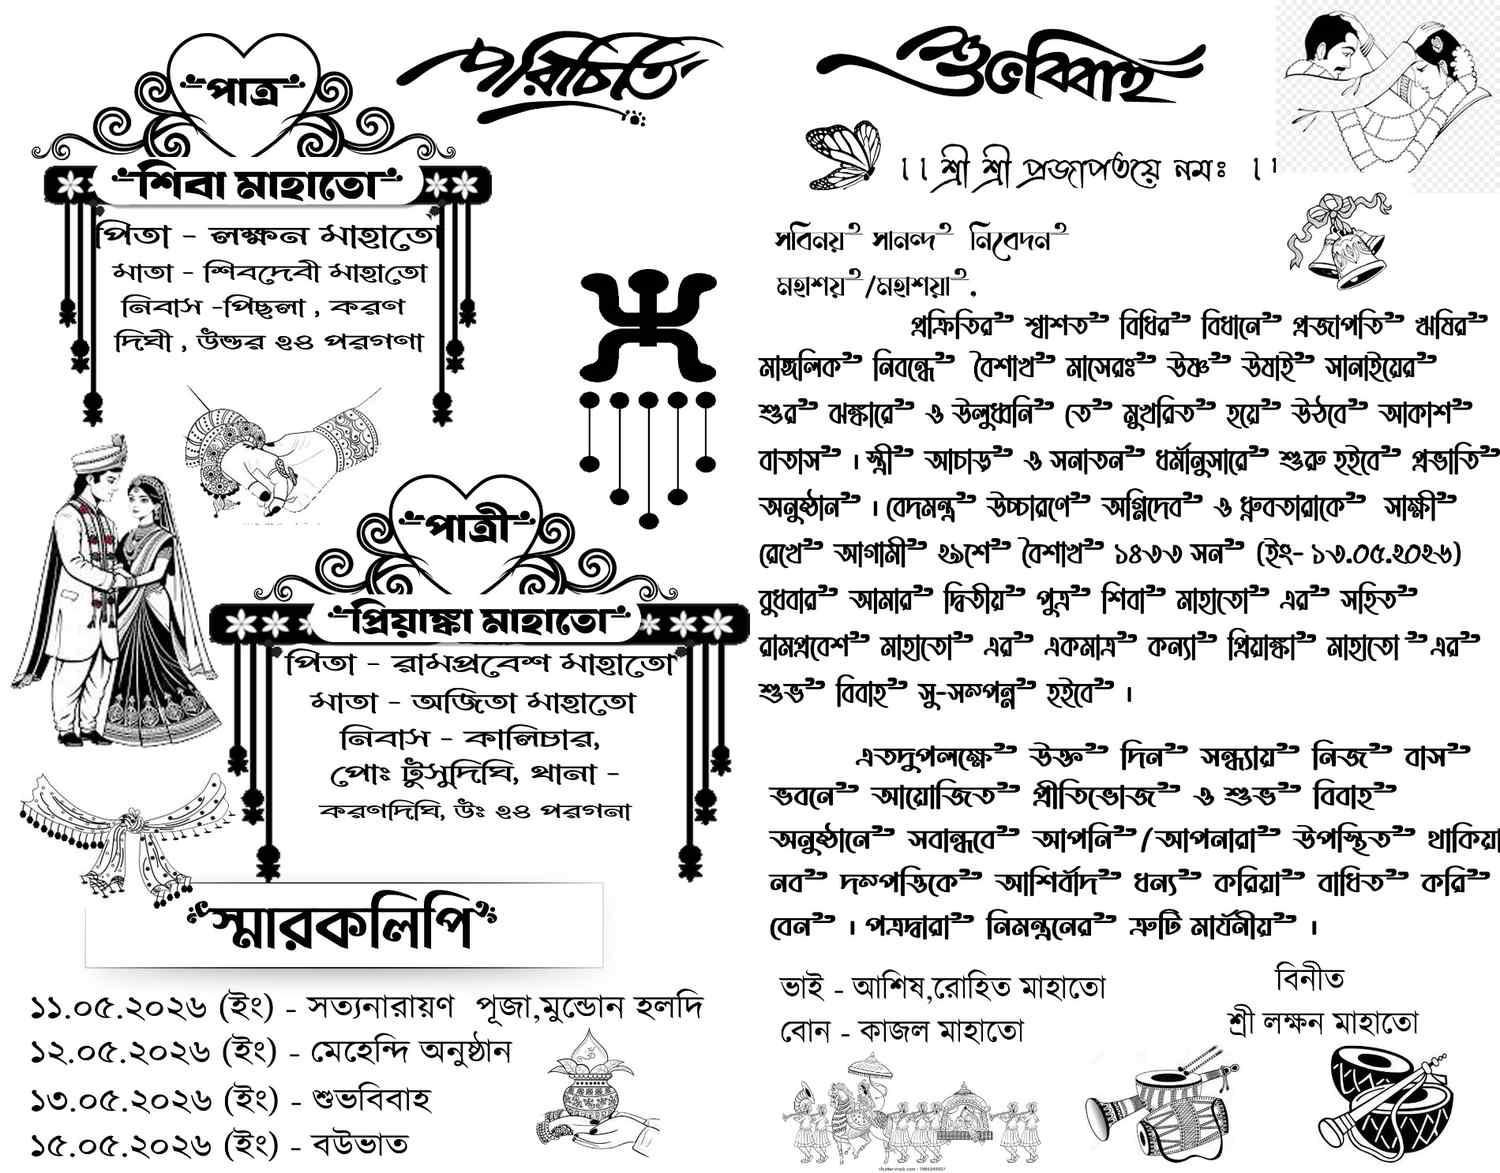 পরিচিতি
পাত্র
শিবা মাহাতো
পিতা - লক্ষন মাহাতো
মাতা - শিবদেবী মাহাতো
নিবাস -পিছলা , করণ
দিঘী , উত্তর ২৪ পরগণা
পাত্রী
প্রিয়াঙ্কা মাহাতো
পিতা - রামপ্রবেশ মাহাতো
মাতা - অজিতা মাহাতো
নিবাস - কালিচার,
পোঃ টুঁসুদিঘি, থানা -
করণদিঘি, উঃ ২৪ পরগনা
স্মারকলিপি
১১.০৫.২০২৬ (ইং) - সত্যনারায়ণ পূজা,মুন্ডোন হলদি
১২.০৫.২০২৬ (ইং) - মেহেন্দি অনুষ্ঠান
১৩.০৫.২০২৬ (ইং) - শুভবিবাহ
১৫.০৫.২০২৬ (ইং) - বউভাত
শুভবিবাহ
।। শ্রী শ্রী প্রজাপতয়ে নমঃ ।।
সবিনয় সানন্দ নিবেদন
মহাশয়/মহাশয়া.
প্রক্রিতির শ্বাশত বিধির বিধানে প্রজাপতি ঋষির
মাঙ্গলিক নিবন্ধে বৈশাখ মাসেরঃ উষ্ণ উষাই সানাইয়ের
শুর ঝঙ্কারে ও উলুধ্বনি তে মুখরিত হয়ে উঠবে আকাশ
বাতাস । স্ত্রী আচাড় ও সনাতন ধর্মানুসারে শুরু হইবে প্রভাতি
অনুষ্ঠান । বেদমন্ত্র উচ্চারণে অগ্নিদেব ও ধ্রুবতারাকে সাক্ষী
রেখে আগামী ২৯শে বৈশাখ ১৪৩৩ সন (ইং- ১৩.০৫.২০২৬)
বুধবার আমার দ্বিতীয় পুত্র শিবা মাহাতো এর সহিত
রামপ্রবেশ মাহাতো এর একমাত্র কন্যা প্রিয়াঙ্কা মাহাতো এর
শুভ বিবাহ সু-সম্পন্ন হইবে ।
এতদুপলক্ষে উক্ত দিন সন্ধ্যায় নিজ বাস
ভবনে আয়োজিত প্রীতিভোজ ও শুভ বিবাহ
অনুষ্ঠানে সবান্ধবে আপনি/আপনারা উপস্থিত থাকিয়া
নব দম্পত্তিকে আশির্বাদ ধন্য করিয়া বাধিত করি
বেন । পত্রদ্বারা নিমন্ত্রনের ত্রুটি মার্যনীয় ।
ভাই - আশিষ,রোহিত মাহাতো
বোন - কাজল মাহাতো
বিনীত
শ্রী লক্ষন মাহাতো